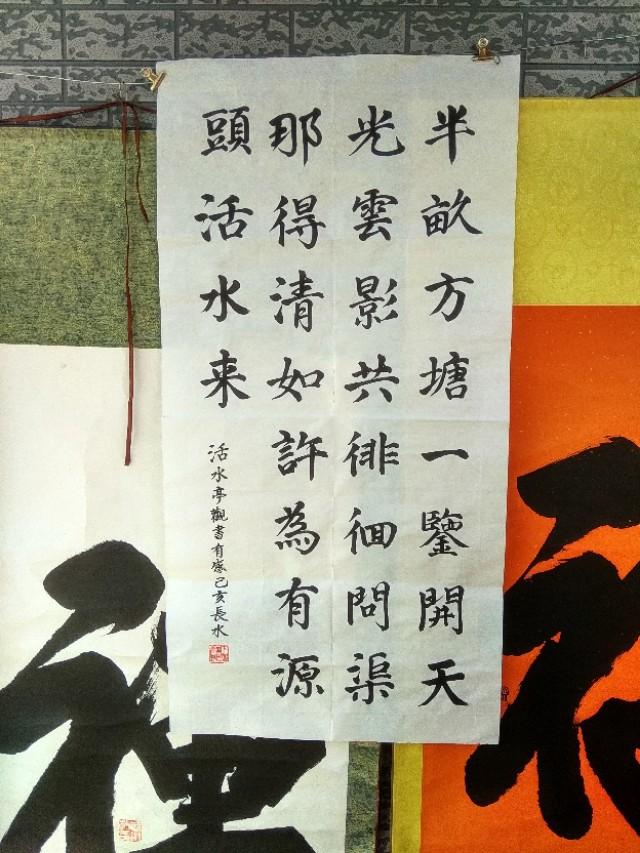 半畝方塘一鑒開天
光雲影共徘徊問渠
那得清如許為有源
頭活水来
活水亭觀書有感己亥長水